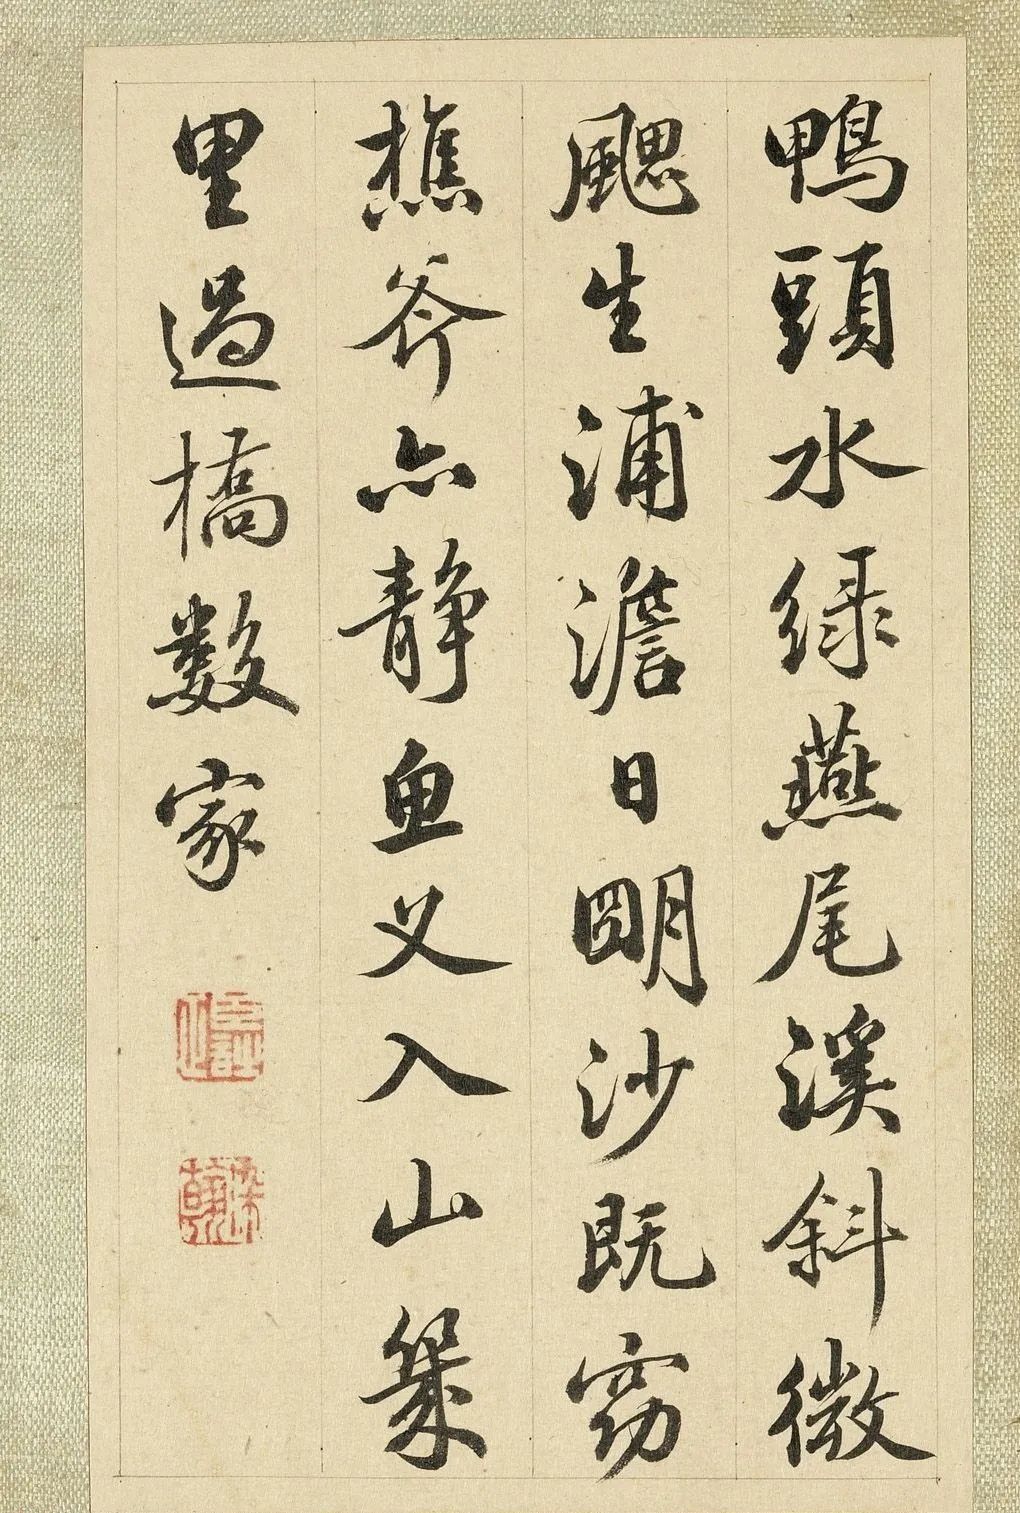 鴨頭水緑燕尾溪斜微
颸生浦澹日朙沙既窈
樵斧亦静魚叉入山幾
里過橋數家